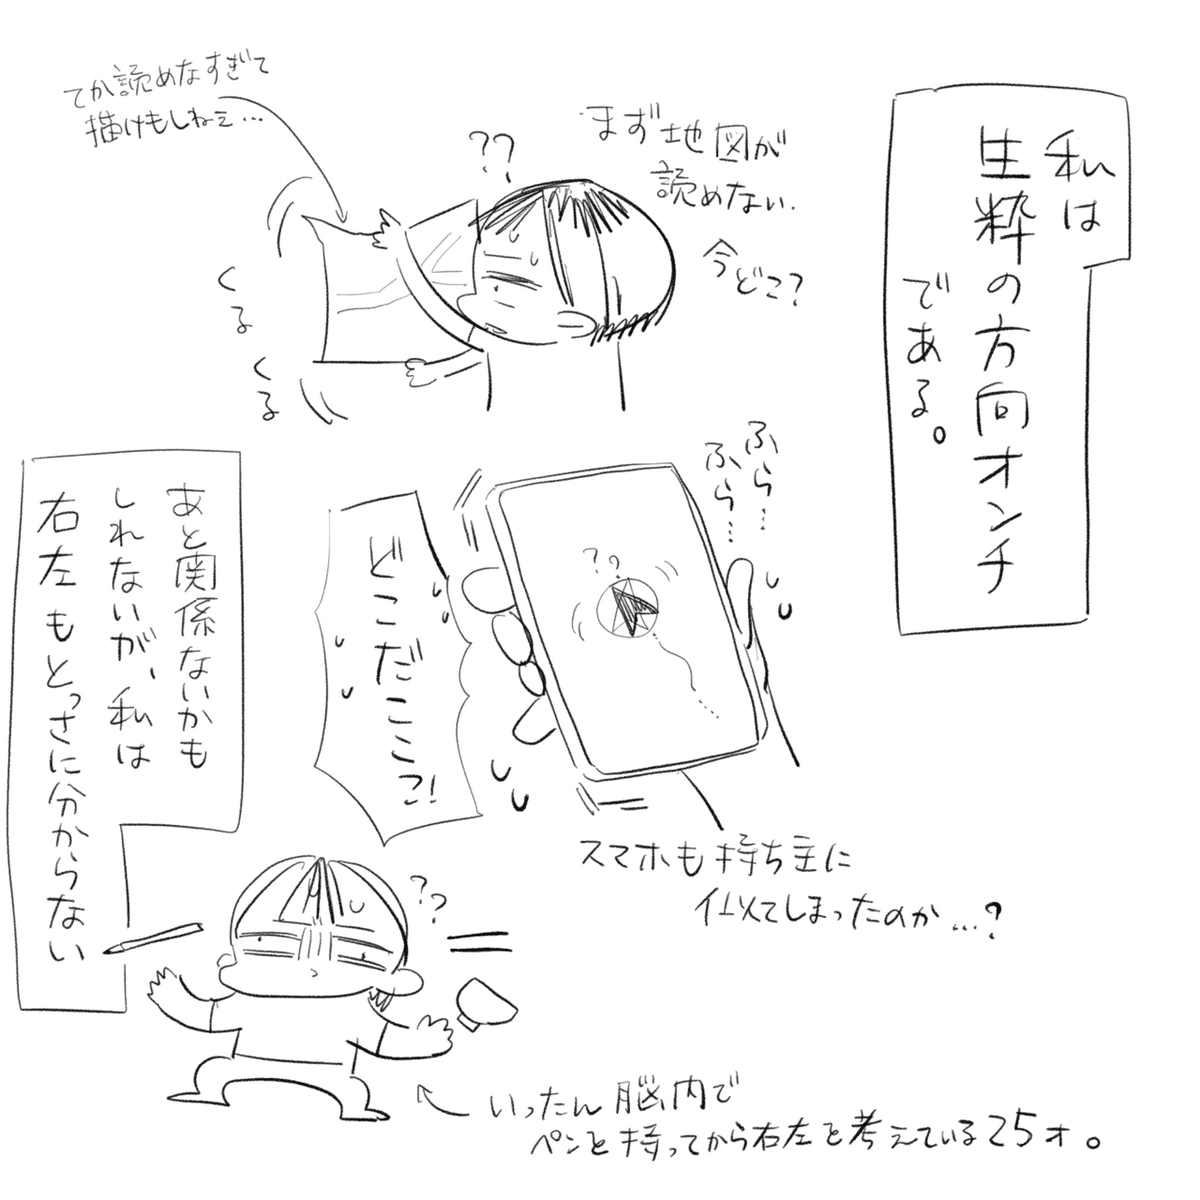 私は
生粋の方向オンチ
である。
まず地図が
読めない.
今どこ?
??
てか読めなすぎて
描けもしねェ…
くる
くる
ふら…
ふら…
??
どこだここ!
スマホも持ち主に
似てしまったのか…?
あと関係ないかも
しれないが、私は
右左もとっさに分からない
??
いったん脳内で
ペンと持ってから右左と考えている25才。